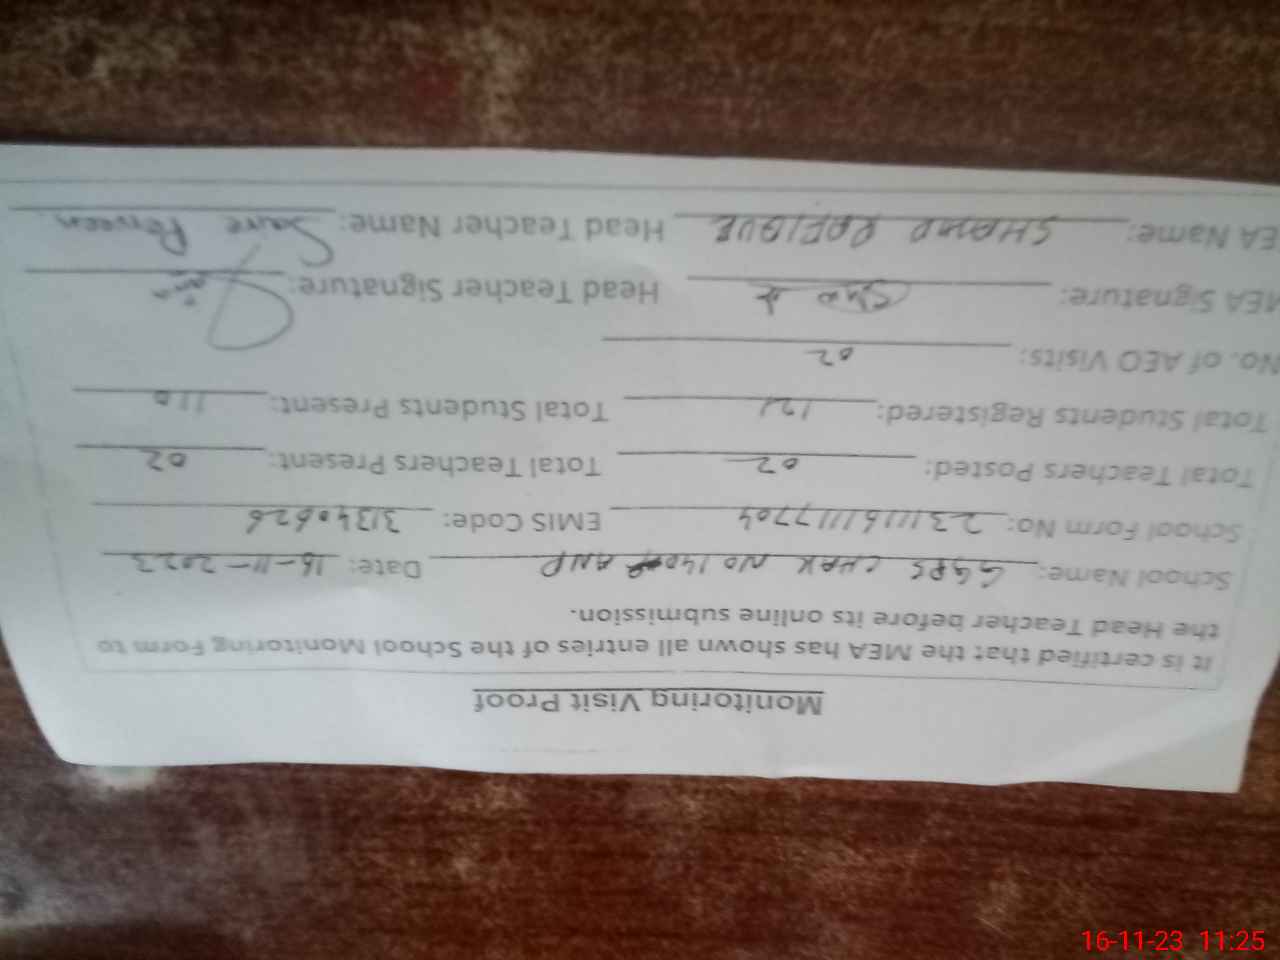 Monitoring Visit Proof
It is certified that the MEA has shown all entries of the School Monitoring Form to
the Head Teacher before its online submission.
School Name: GGPS CHAK NO 140 ANP Date: 16-11-2023
School Form No: 2311161117704 EMIS Code: 31340626
Total Teachers Posted: 02 Total Teachers Present: 02
Total Students Registered: 121 Total Students Present: 110
No. of AEO Visits: 02
MEA Signature: Head Teacher Signature:
EA Name: RAFIQUE Head Teacher Name: Perveen
16-11-23 11:25